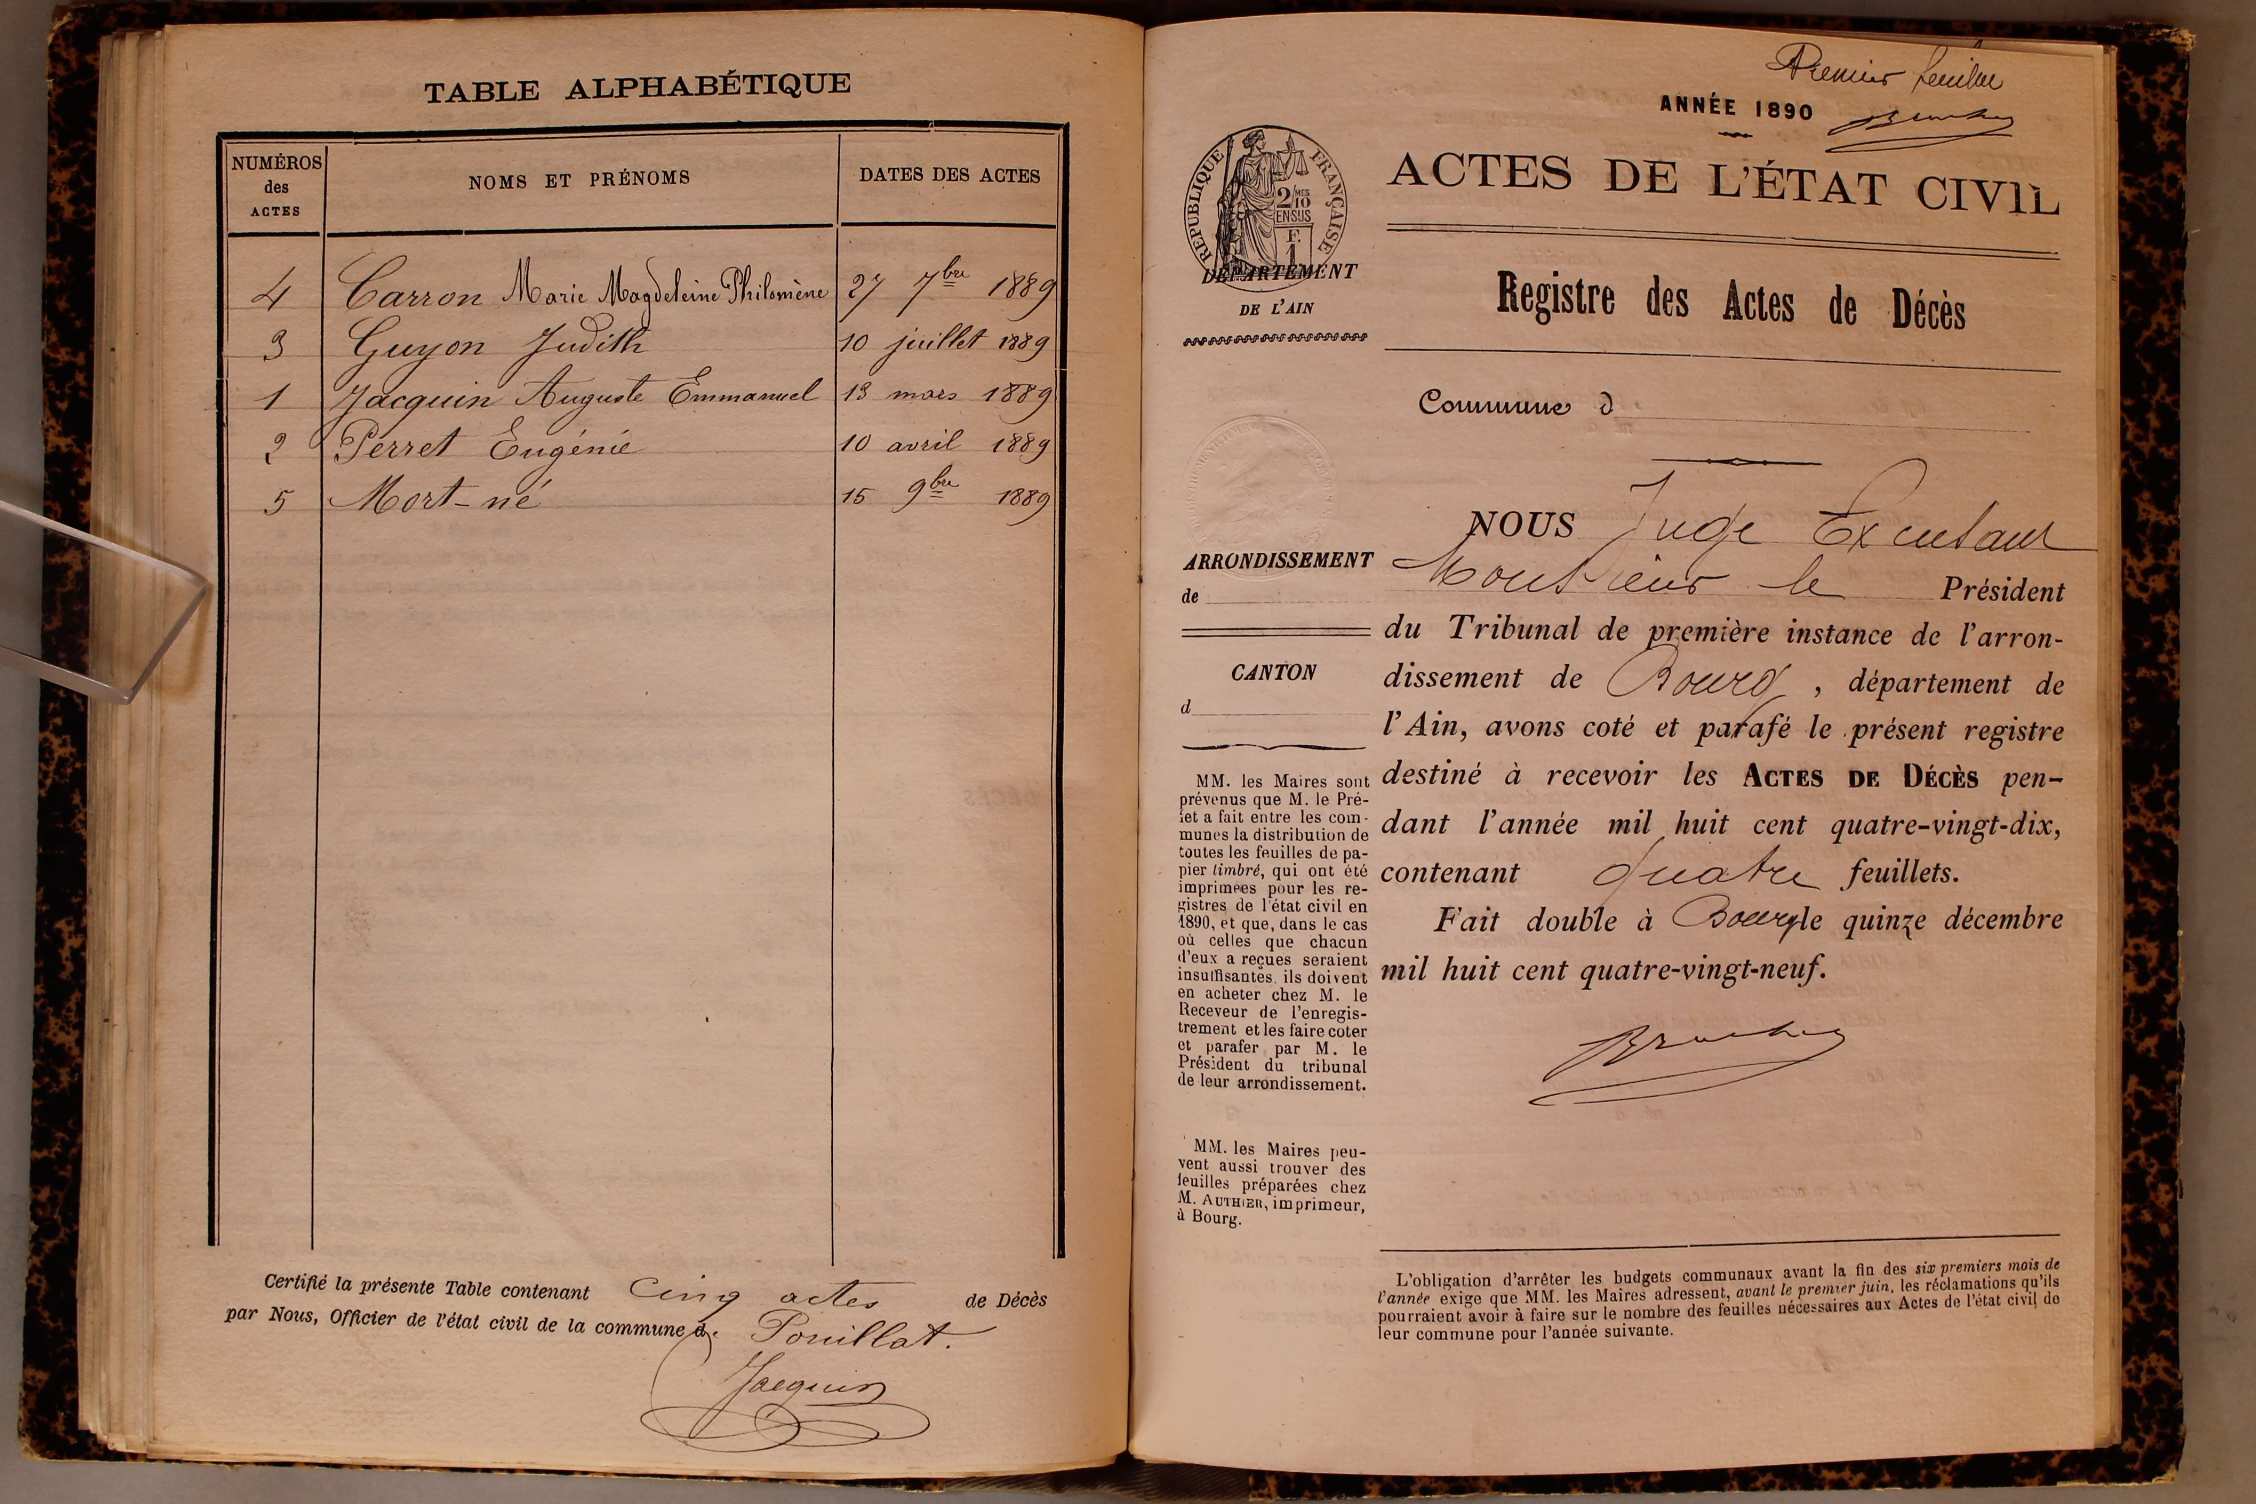 TABLE ALPHABÉTIQUE
NUMÉROS des ACTES NOMS ET PRÉNOMS DATES DES ACTES
4 Carron Marie Magdeleine Philomène 27 7bre 1889
3 Guyon Judith 10 juillet 1889
1 Jacquin Auguste Emmanuel 13 mars 1889
2 Perret Eugénie 10 avril 1889
5 Mort-né 15 9bre 1889
Certifié la présente Table contenant Cinq actes de Décès
par Nous, Officier de l'état civil de la commune d. Pouillat.
Jacquin
Premier feuillet
ANNÉE 1890
RÉPUBLIQUE FRANÇAISE
2/10 MES
EN SUS
F.
1
DÉPARTEMENT
DE L'AIN
ACTES DE L'ÉTAT CIVIL
Registre des Actes de Décès
Commune d
ARRONDISSEMENT
de
CANTON
d
MM. les Maires sont
prévenus que M. le Pré-
fet a fait entre les com-
munes la distribution de
toutes les feuilles de pa-
pier timbré, qui ont été
imprimées pour les re-
gistres de l'état civil en
1890, et que, dans le cas
où celles que chacun
d'eux a reçues seraient
insuffisantes, ils doivent
en acheter chez M. le
Receveur de l'enregis-
trement et les faire coter
et parafer par M. le
Président du tribunal
de leur arrondissement.
MM. les Maires peu-
vent aussi trouver des
feuilles préparées chez
M. AUTHIER, imprimeur,
à Bourg.
NOUS Juge
Monsieur le Président
du Tribunal de première instance de l'arron-
dissement de Bourg, département de
l'Ain, avons coté et parafé le présent registre
destiné à recevoir les ACTES DE DÉCÈS pen-
dant l'année mil huit cent quatre-vingt-dix,
contenant quatre feuillets.
Fait double à Bourg le quinze décembre
mil huit cent quatre-vingt-neuf.
L'obligation d'arrêter les budgets communaux avant la fin des six premiers mois de
l'année exige que MM. les Maires adressent, avant le premier juin, les réclamations qu'ils
pourraient avoir à faire sur le nombre des feuilles nécessaires aux Actes de l'état civil de
leur commune pour l'année suivante.